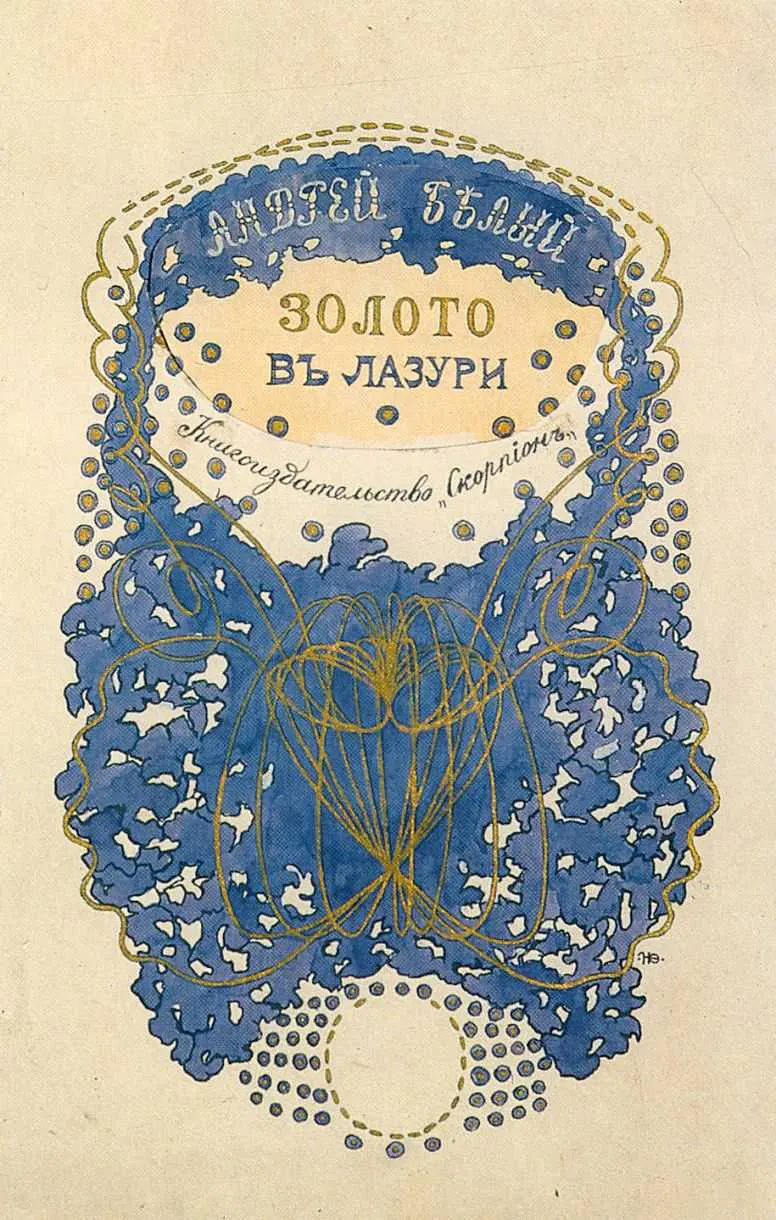 АНДРЕЙ БѢЛЫЙ
ЗОЛОТО
ВЪ ЛАЗУРИ
Книгоиздательство „Скорпіонъ„
·НѲ·